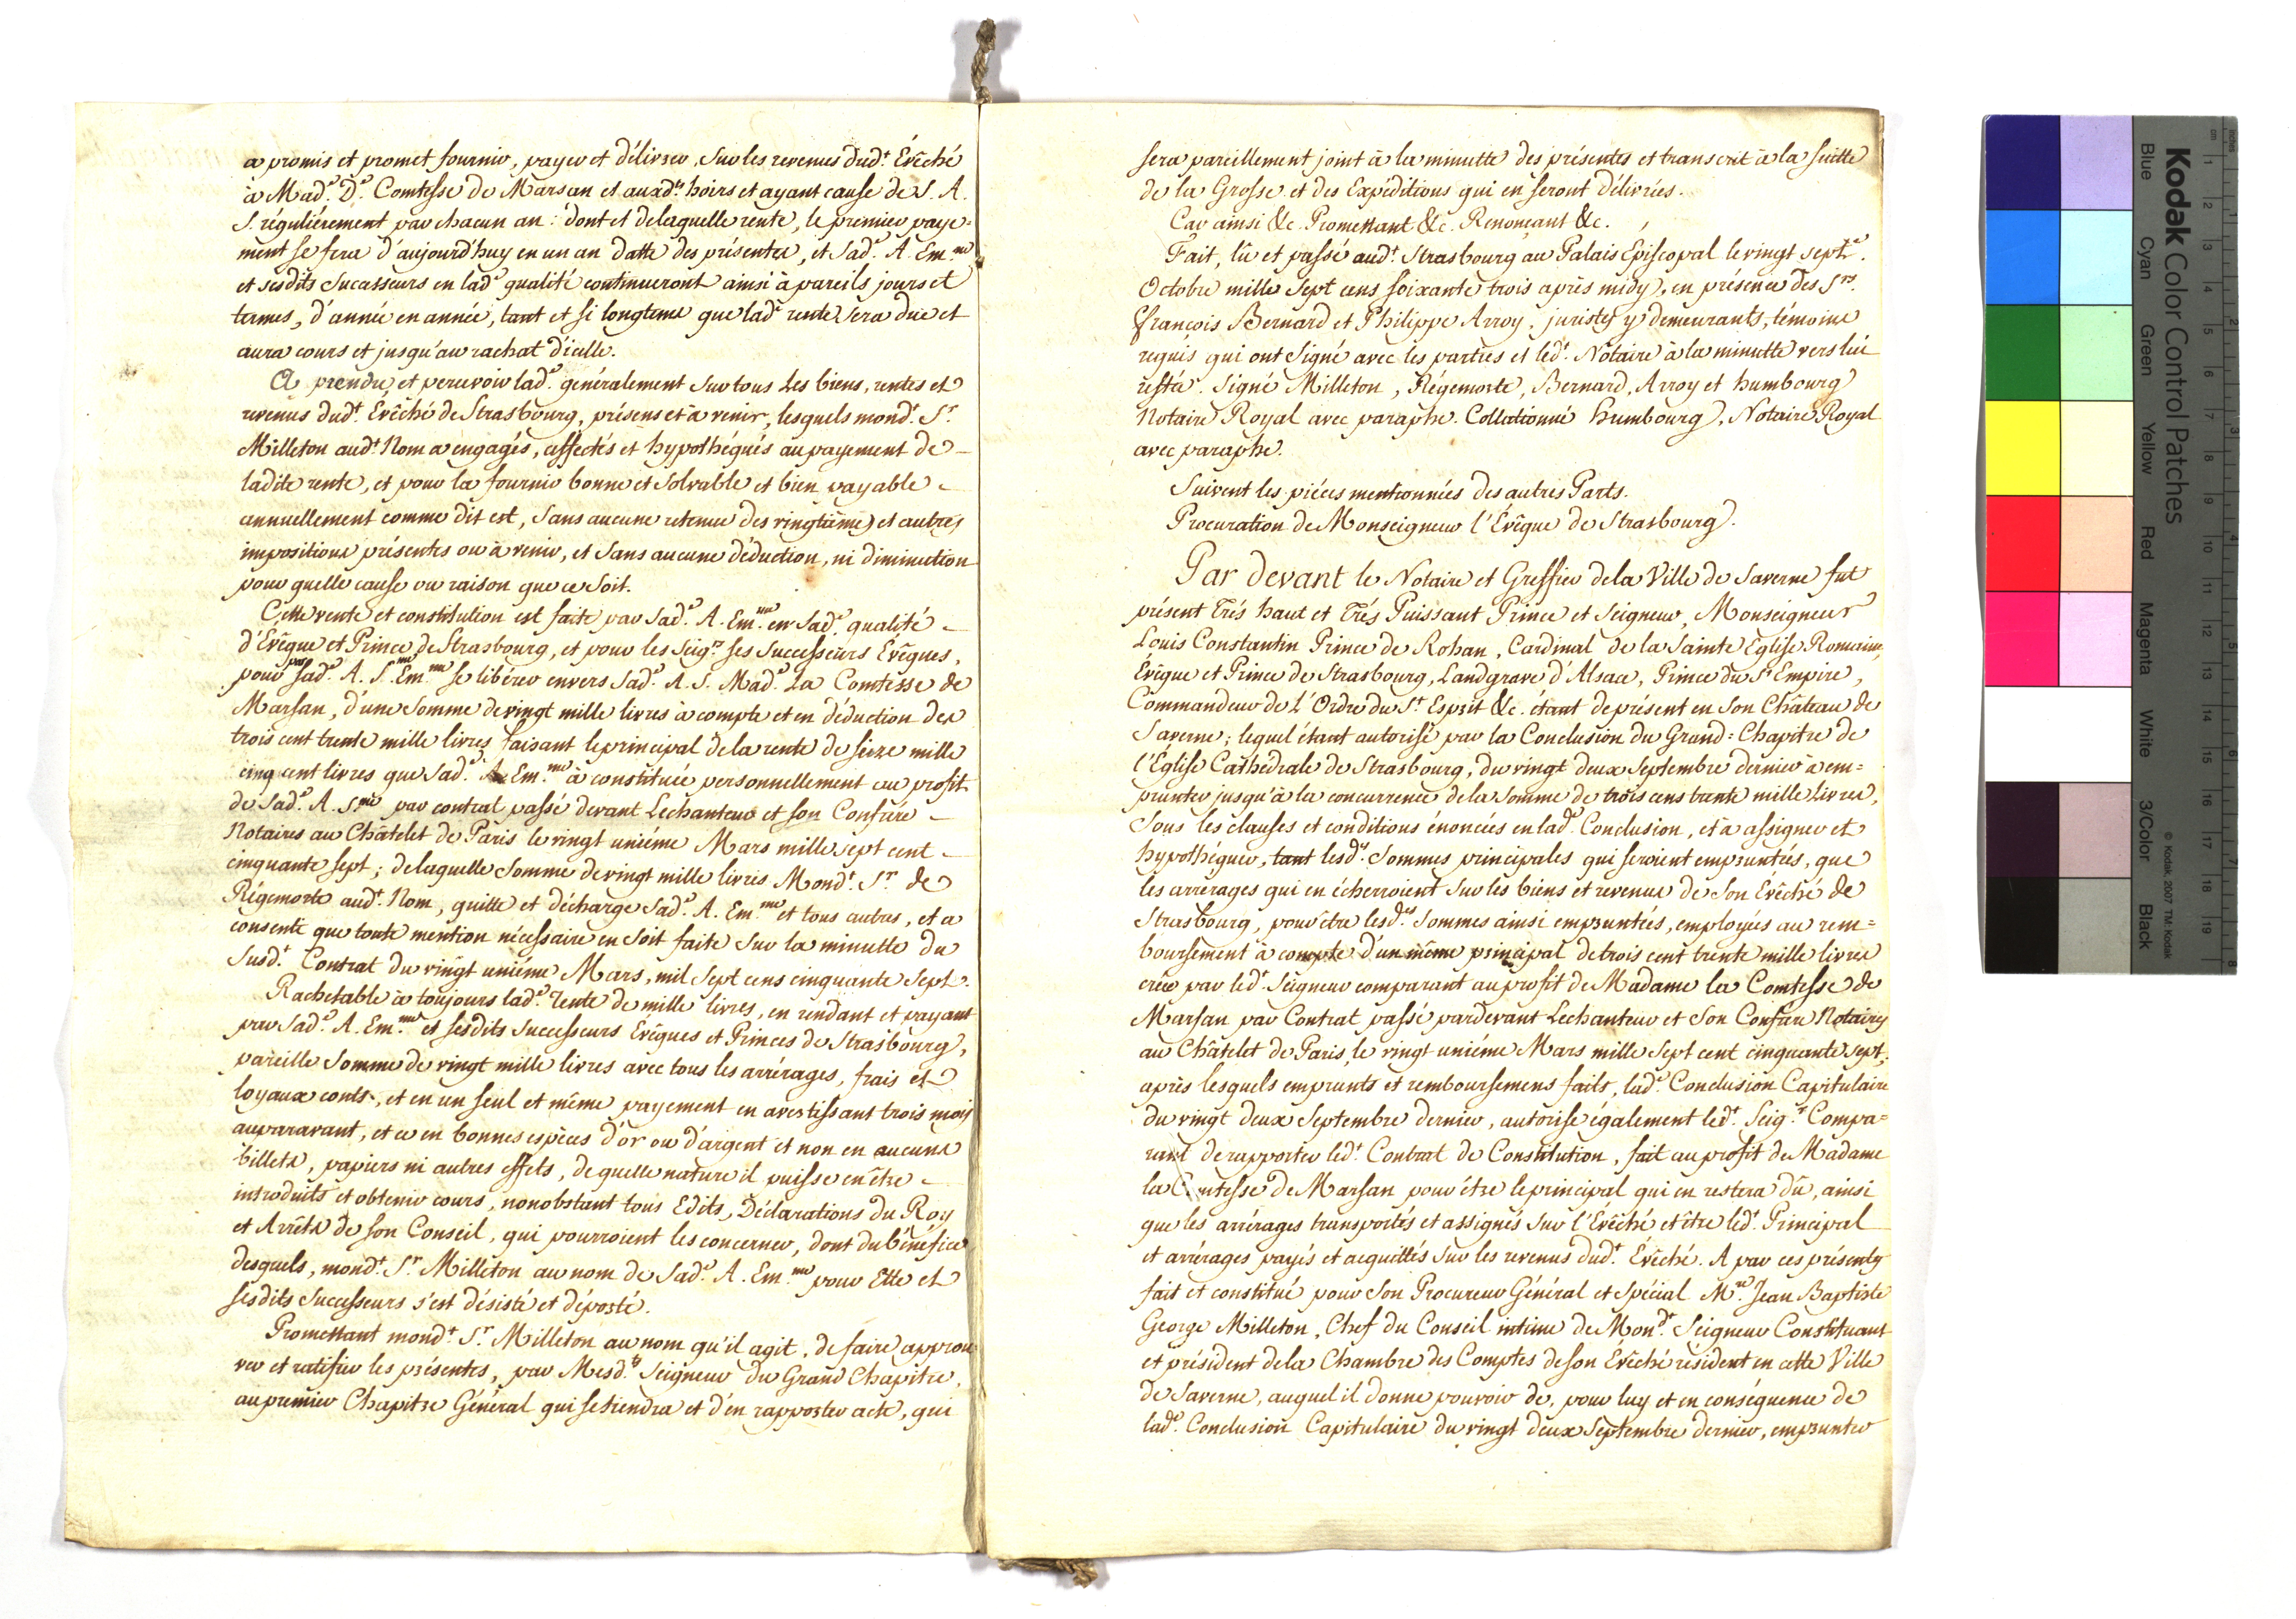 a promis et promet fournir, payer et délivrer, sur les revenus dud.t Évêché
à Mad.e D.e Comtesse de Marsan et auxd.ts hoirs et ayant cause de S. A.
S. réguliérement par chacun an : dont et delaquelle rente, le premier paye=
ment se fera d'aujourd'huy en un an datte des présentes, et Sad.e A. Em.me
et sesdits Successeurs en lad.e qualité continueront ainsi à pareils jours et
termes, d'année en année, tant et si longtems que lad.e rente sera due et
aura cours et jusqu'au rachat d'icelle.
A prendre et percevoir lad.e généralement sur tous Les biens, rentes et
revenus dud.t Évêché de Strasbourg, présens et à venir, lesquels mond.t S.r
Milleton aud.t Nom a engagés, affectés et hypothéqués au payement de
ladite rente, et pour la fournir bonne et Solvable et bien payable
annuellement comme dit est, Sans aucune retenue des vingtiéme et autres
impositions présentes ou à venir, et Sans aucune déduction, ni diminution
pour quelle cause ou raison que ce Soit.
Cette vente et constitution est faite par Sad.e A. Em.me en Sad.e qualité
d'Evêque et Prince de Strasbourg, et pour les Seig.rs ses Successeurs Evêques,
pour par Sad.e A. S. Em.me se libérer envers Sad.e A. S. Mad.e La Comtesse de
Marsan, d'une Somme de vingt mille livres à compte et en déduction des
trois cent trente mille livres faisant le principal de la rente de seize mille
cinq cent livres que Sad.e A. Em.me à constituée personnellement au profit
de Sad.e A. S.me par contrat passé devant Lechanteur et son Confrére
Notaires au Châtelet de Paris le vingt uniéme Mars mille sept cent
cinquante sept ; delaquelle Somme de vingt mille livres Mond.t S.r de
Régemorte aud.t Nom, quitte et décharge Sad.e A. Em.me et tous autres, et a
consenti que toute mention nécessaire en Soit faite Sur la minutte du
Susd.t Contrat du vingt uniéme Mars, mil Sept cens cinquante Sept.
Rachetable à toujours lad.e rente de mille livres, en rendant et payant
par Sad.e A. Em.me et Sesdits Successeurs Evêques et Princes de Strasbourg,
pareille Somme de vingt mille livres avec tous les arrérages, frais et
loyaux couts, et en un seul et même payement en avertissant trois mois
auparavant, et ce en bonnes espèces d'or ou d'argent et non en aucuns
billets, papiers ni autres effets, de quelle nature il puisse en être
introduits et obtenir cours, nonobstant tous Edits, Déclarations du Roy
et Arrêts de son Conseil, qui pourroient les concerner, dont du bénéfice
desquels, mond.t S.r Milleton au nom de Sad.e A. Em.me pour Elle et
sesdits Successeurs s'est désisté et déporté.
Promettant mond.t S.r Milleton au nom qu'il agit, de faire approu
ver et ratifier les présentes, par Mesd.ts Seigneur du Grand Chapitre,
au premier Chapitre Général qui se tiendra et d'en rapporter acte, qui
sera pareillement joint à la minutte des présentes et transcrit à la suitte
de la Grosse et des Expéditions qui en seront délivrées.
Car ainsi &c. Promettant &c. Renonçant &c.
Fait, lû et passé aud.t Strasbourg au Palais Episcopal le vingt sept.e
Octobre mille Sept cens soixante trois après midy, en présence des S.rs
françois Bernard et Philippe Arroy, juristes y demeurants, témoins
requis qui ont Signé avec les parties et led.t Notaire à la minutte vers lui
restée. Signé Milleton, Régemorte, Bernard, Arroy et humbourg
Notaire Royal avec paraphe. Collationné humbourg, Notaire Royal
avec paraphe.
Suivent les piéces mentionnées des autres Parts.
Procuration de Monseigneur l'Évêque de Strasbourg.
Par devant le Notaire et Greffier dela Ville de Saverne fut
présent Trés haut et Trés Puissant Prince et Seigneur, Monseigneur
Louis Constantin Prince de Rohan, Cardinal de la Sainte Eglise Romaine,
Evêque et Prince de Strasbourg, Landgrave d'Alsace, Prince du S.t Empire,
Commandeur de L'Ordre du S.t Esprit &c. étant deprésent en Son Château de
Saverne ; lequel étant autorisé par la Conclusion du Grand=Chapitre de
l'Église Cathédrale de Strasbourg, du vingt deux Septembre dernier à em=
prunter jusqu'à la concurrence dela Somme de trois cens trente mille Livres,
Sous les clauses et conditions énoncées en lad.e Conclusion, et à assigner et
hypothéquer, tant lesd.es Sommes principales qui seroient empruntées, que
les arrérages qui en écherroient Sur les biens et revenus de Son Evêché de
Strasbourg, pour être lesd.es Sommes ainsi empruntées, employées au rem=
boursement à compte d'un même principal de trois cent trente mille livres
créé par led.t Seigneur comparant au profit de Madame la Comtesse de
Marsan par Contrat passé pardevant Lechanteur et Son Confrere Notaires
au Châtelet de Paris, le vingt uniéme Mars mille Sept cent cinquante sept,
après lesquels emprunts et remboursemens faits, lad.e Conclusion Capitulaire
du vingt deux Septembre dernier, autorise également led.t Seig.r Compa=
rant de rapporter led.t Contrat de Constitution, fait au profit de Madame
la Comtesse de Marsan pour étre le principal qui en restera dû, ainsi
que les arrérages transportés et assignés Sur l'Evêché et être led.t Principal
et arrérages payés et acquittés Sur les revenus dud.t Évêché. A par ces présentes
fait et constitué pour Son Procureur Général et Spécial M.re Jean Baptiste
George Milleton, Chef du Conseil intime de Mond.t Seigneur Constituant
et président dela Chambre des Comptes de son Évêché résident en cette Ville
de Saverne, auquel il donne pouvoir de, pour luy et en conséquence de
lad.e Conclusion Capitulaire du vingt deux Septembre dernier, emprunter
Kodak Color Control Patches
Blue Cyan Green Yellow Red Magenta White 3/Color Black
© Kodak, 2007 TM: Kodak
cm 1 2 3 4 5 6 7 8 9 10 11 12 13 14 15 16 17 18 19
inches 1 2 3 4 5 6 7 8